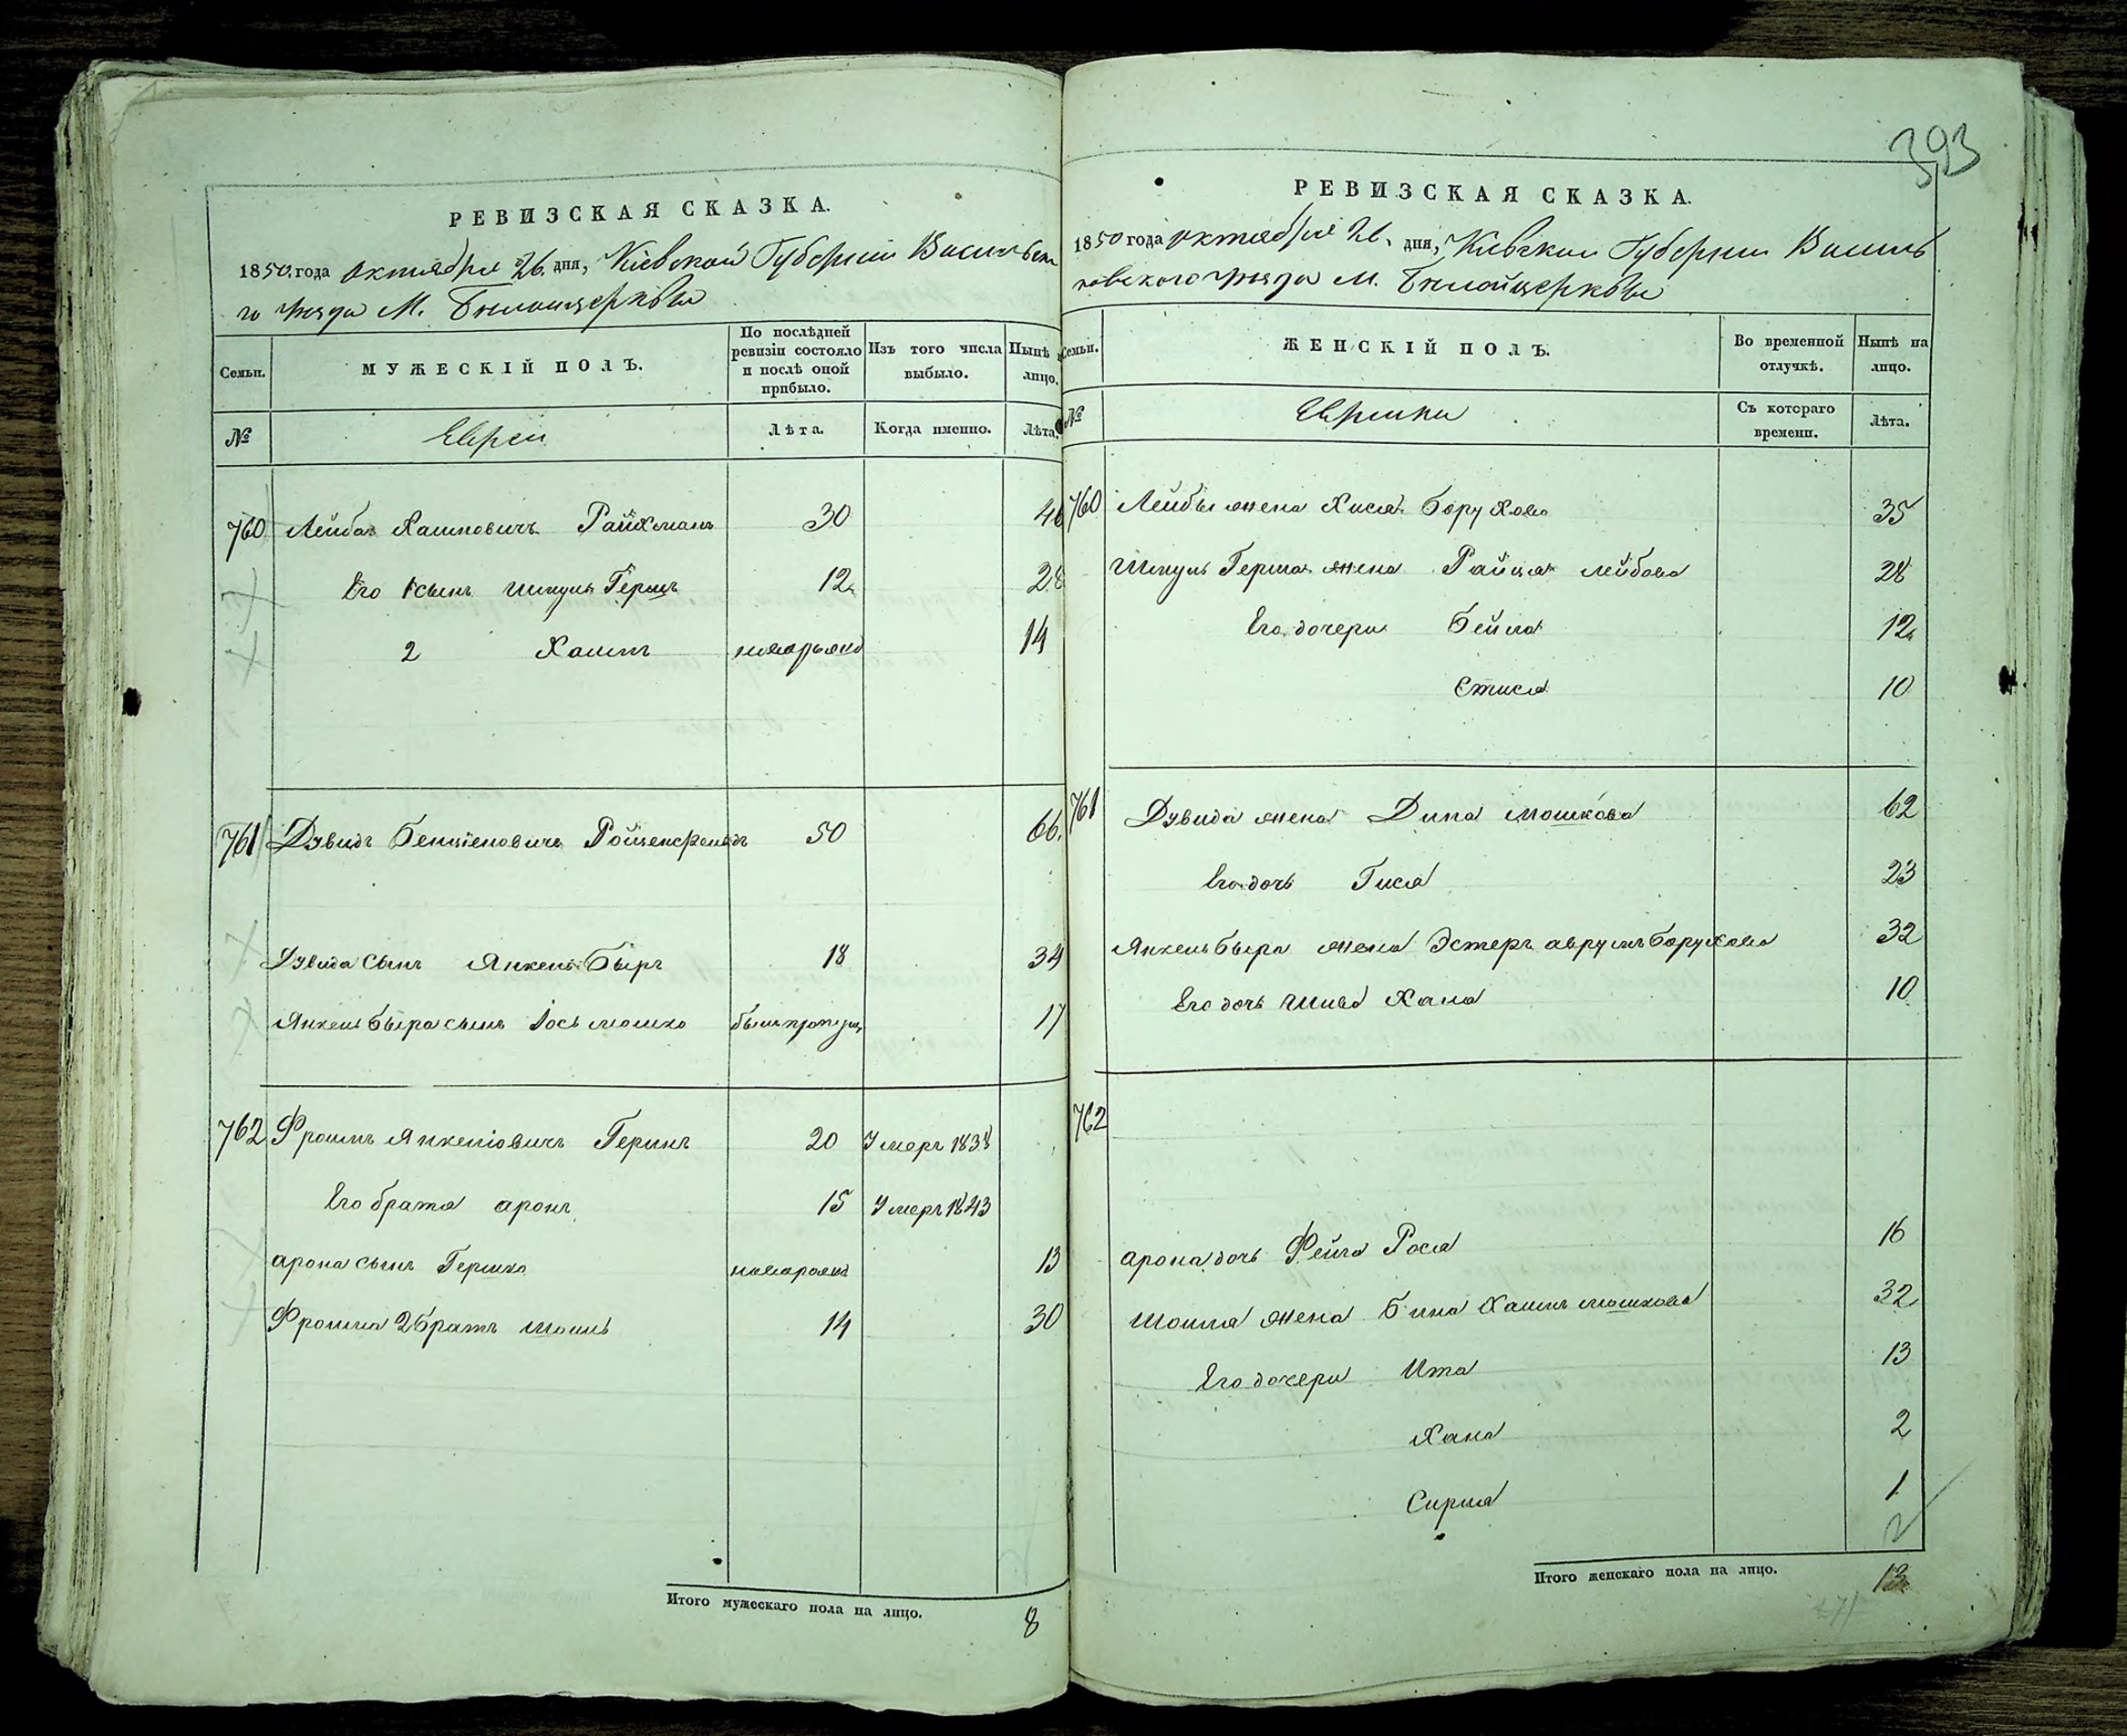 РЕВИЗСКАЯ СКАЗКА.
1850 года октября 26 дня, Кіевской Губерніи Васильков
го уезда М. Белоицеркви
Семьи. МУЖЕСКІЙ ПОЛЪ. По послѣдней ревизіи состояло и послѣ оной прибыло. Изъ того числа выбыло. Нынѣ лицо.
№ Евреи Лѣта. Когда именно. Лѣта.
760 Лейба Хаимовичъ Райхманъ 30 46
Его 1 сынъ Шмуль Гершъ 12 28
2 Хаимъ новорожд 14
761 Дувидъ Бенціеновичъ Ройзенфельдъ 50 66.
Дувида сынъ Янкель Беръ 18 34
Янкель Бера сынъ Іось мошко 17
762 Фроимъ Янкеліовичъ Геринъ 20 Умеръ 1838
Его брата аронъ 15 Умеръ 1843
арона сынъ Гершко новорожд 13
Фроима 2 братъ шоиль 14 30
Итого мужескаго пола на лицо. 8
393
РЕВИЗСКАЯ СКАЗКА.
1850 года октября 26. дня, Кіевской Губерніи Василь
ковского уезда М. Белойцеркви
Семьи. ЖЕНСКІЙ ПОЛЪ. Во временной отлучкѣ. Нынѣ на лицо.
№ Еврейки Съ котораго времени. Лѣта.
760 Лейбы жена Хися Борухова 35
Шмуль Герша жена Райця лейбова 28
Его дочери Бейла 12
Стися 10
761 Дувида жена Дина мошкова 62
Его дочь Гися 23
Янкель Бера жена Эстеръ аврумъ Борухова 32
Его дочь Шива Хана 10
762
арона дочь Фейга Рося 16
Шоиля жена Бина Хаимъ мошкова 32
Его дочери Ита 13
Хана 2
Сирля 1
Итого женскаго пола на лицо. 13